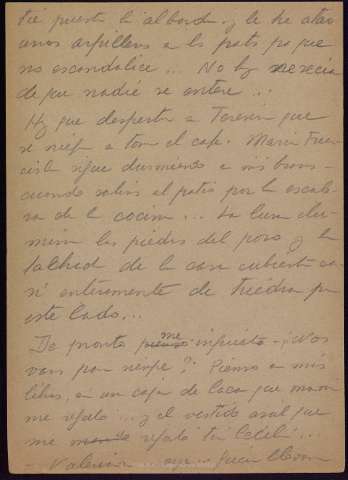 he puesto la albarda y le he atado
unas arpilleras a las patas pa que
no escandalice... No hay necesidad
de que nadie se entere...
Hay que despertar a Teresín que
se niega a tomar el café. María Fran-
cisca sigue durmiendo a mis brazos
cuando salimos al patio por la escale-
ra de la cocina... La luna ilu-
mina las piedras del pozo y la
fachada de la casa cubierta ca-
si enteramente de hiedra por
este lado...
De pronto me inquieto - ¿Nos
vamos para siempre? Pienso a mis
libros, en un cajón de laca que mamá
me regaló... y el vestido azul que
me regaló tía Cecilia...
- Valeriana